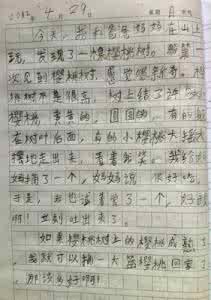 2012年4月29日 星期日
今天,我和爸爸妈妈在山上
玩,发现了一棵樱桃树。我第
一次见到樱桃树,感觉很新奇。樱
桃树不是很高,树上结了许多
樱桃,黄黄的,圆圆的,有的躲
在树叶后面,有的小樱桃大摇大
摆地走出来,看着阳光。我给妈
妈摘了一个,妈妈说:很好吃,
于是,我也试着尝了一个,好酸
啊!立刻吐出来了。
如果樱桃树上的樱桃成熟了,
我就可以摘一大篮樱桃回家了,
那该多好啊!